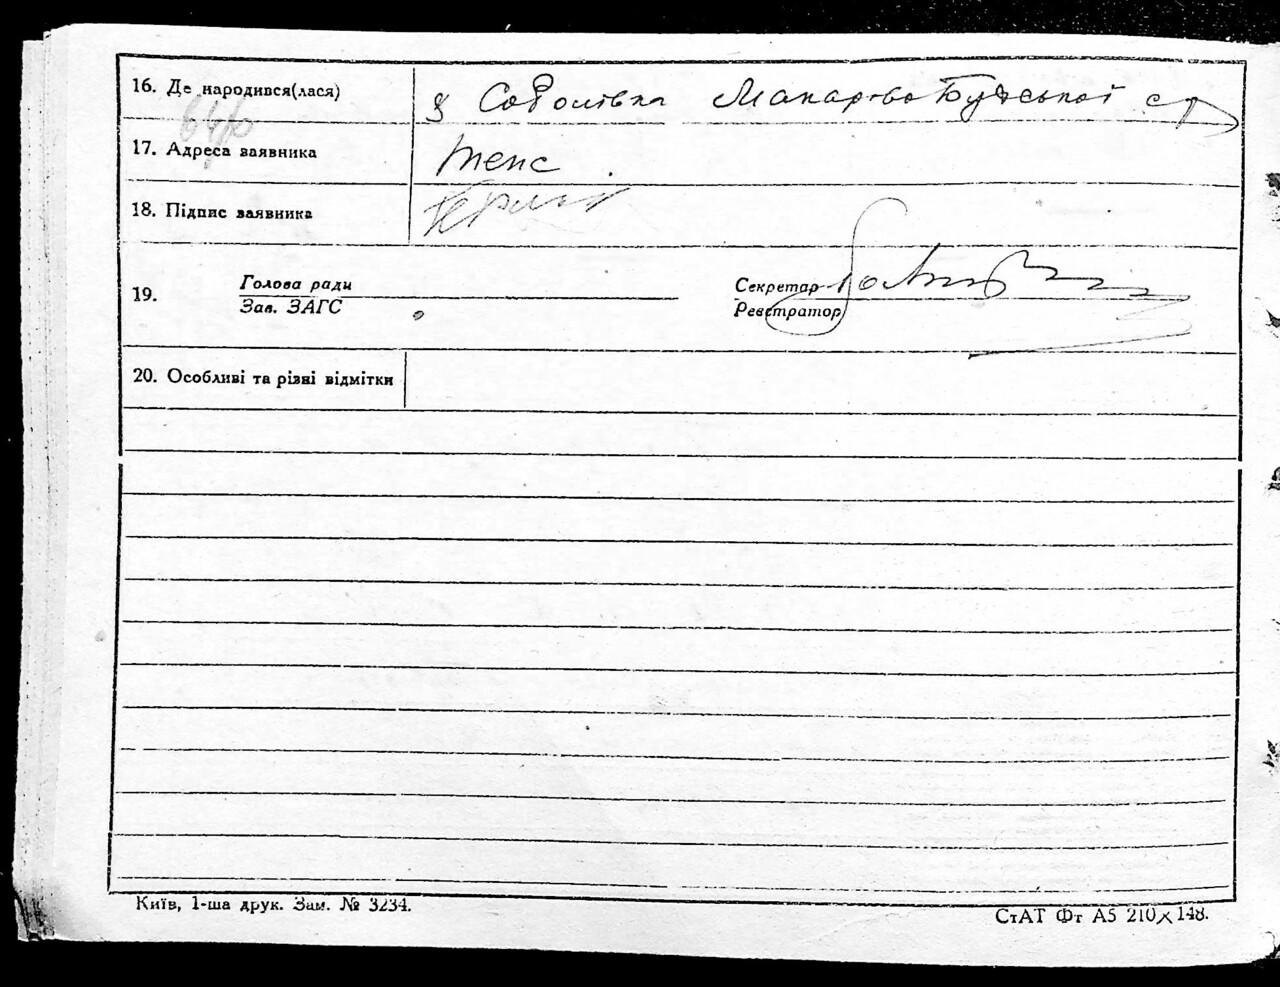 16. Де народився(лася) Соболівка Макарово Будської с р
17. Адреса заявника теж
18. Підпис заявника
Голова ради Секретар
19.
Зав. ЗАГС Реєстратор
20. Особливі та різні відмітки
Київ, 1-ша друк. Зам. № 3234. СтАТ Фт А5 210×148.